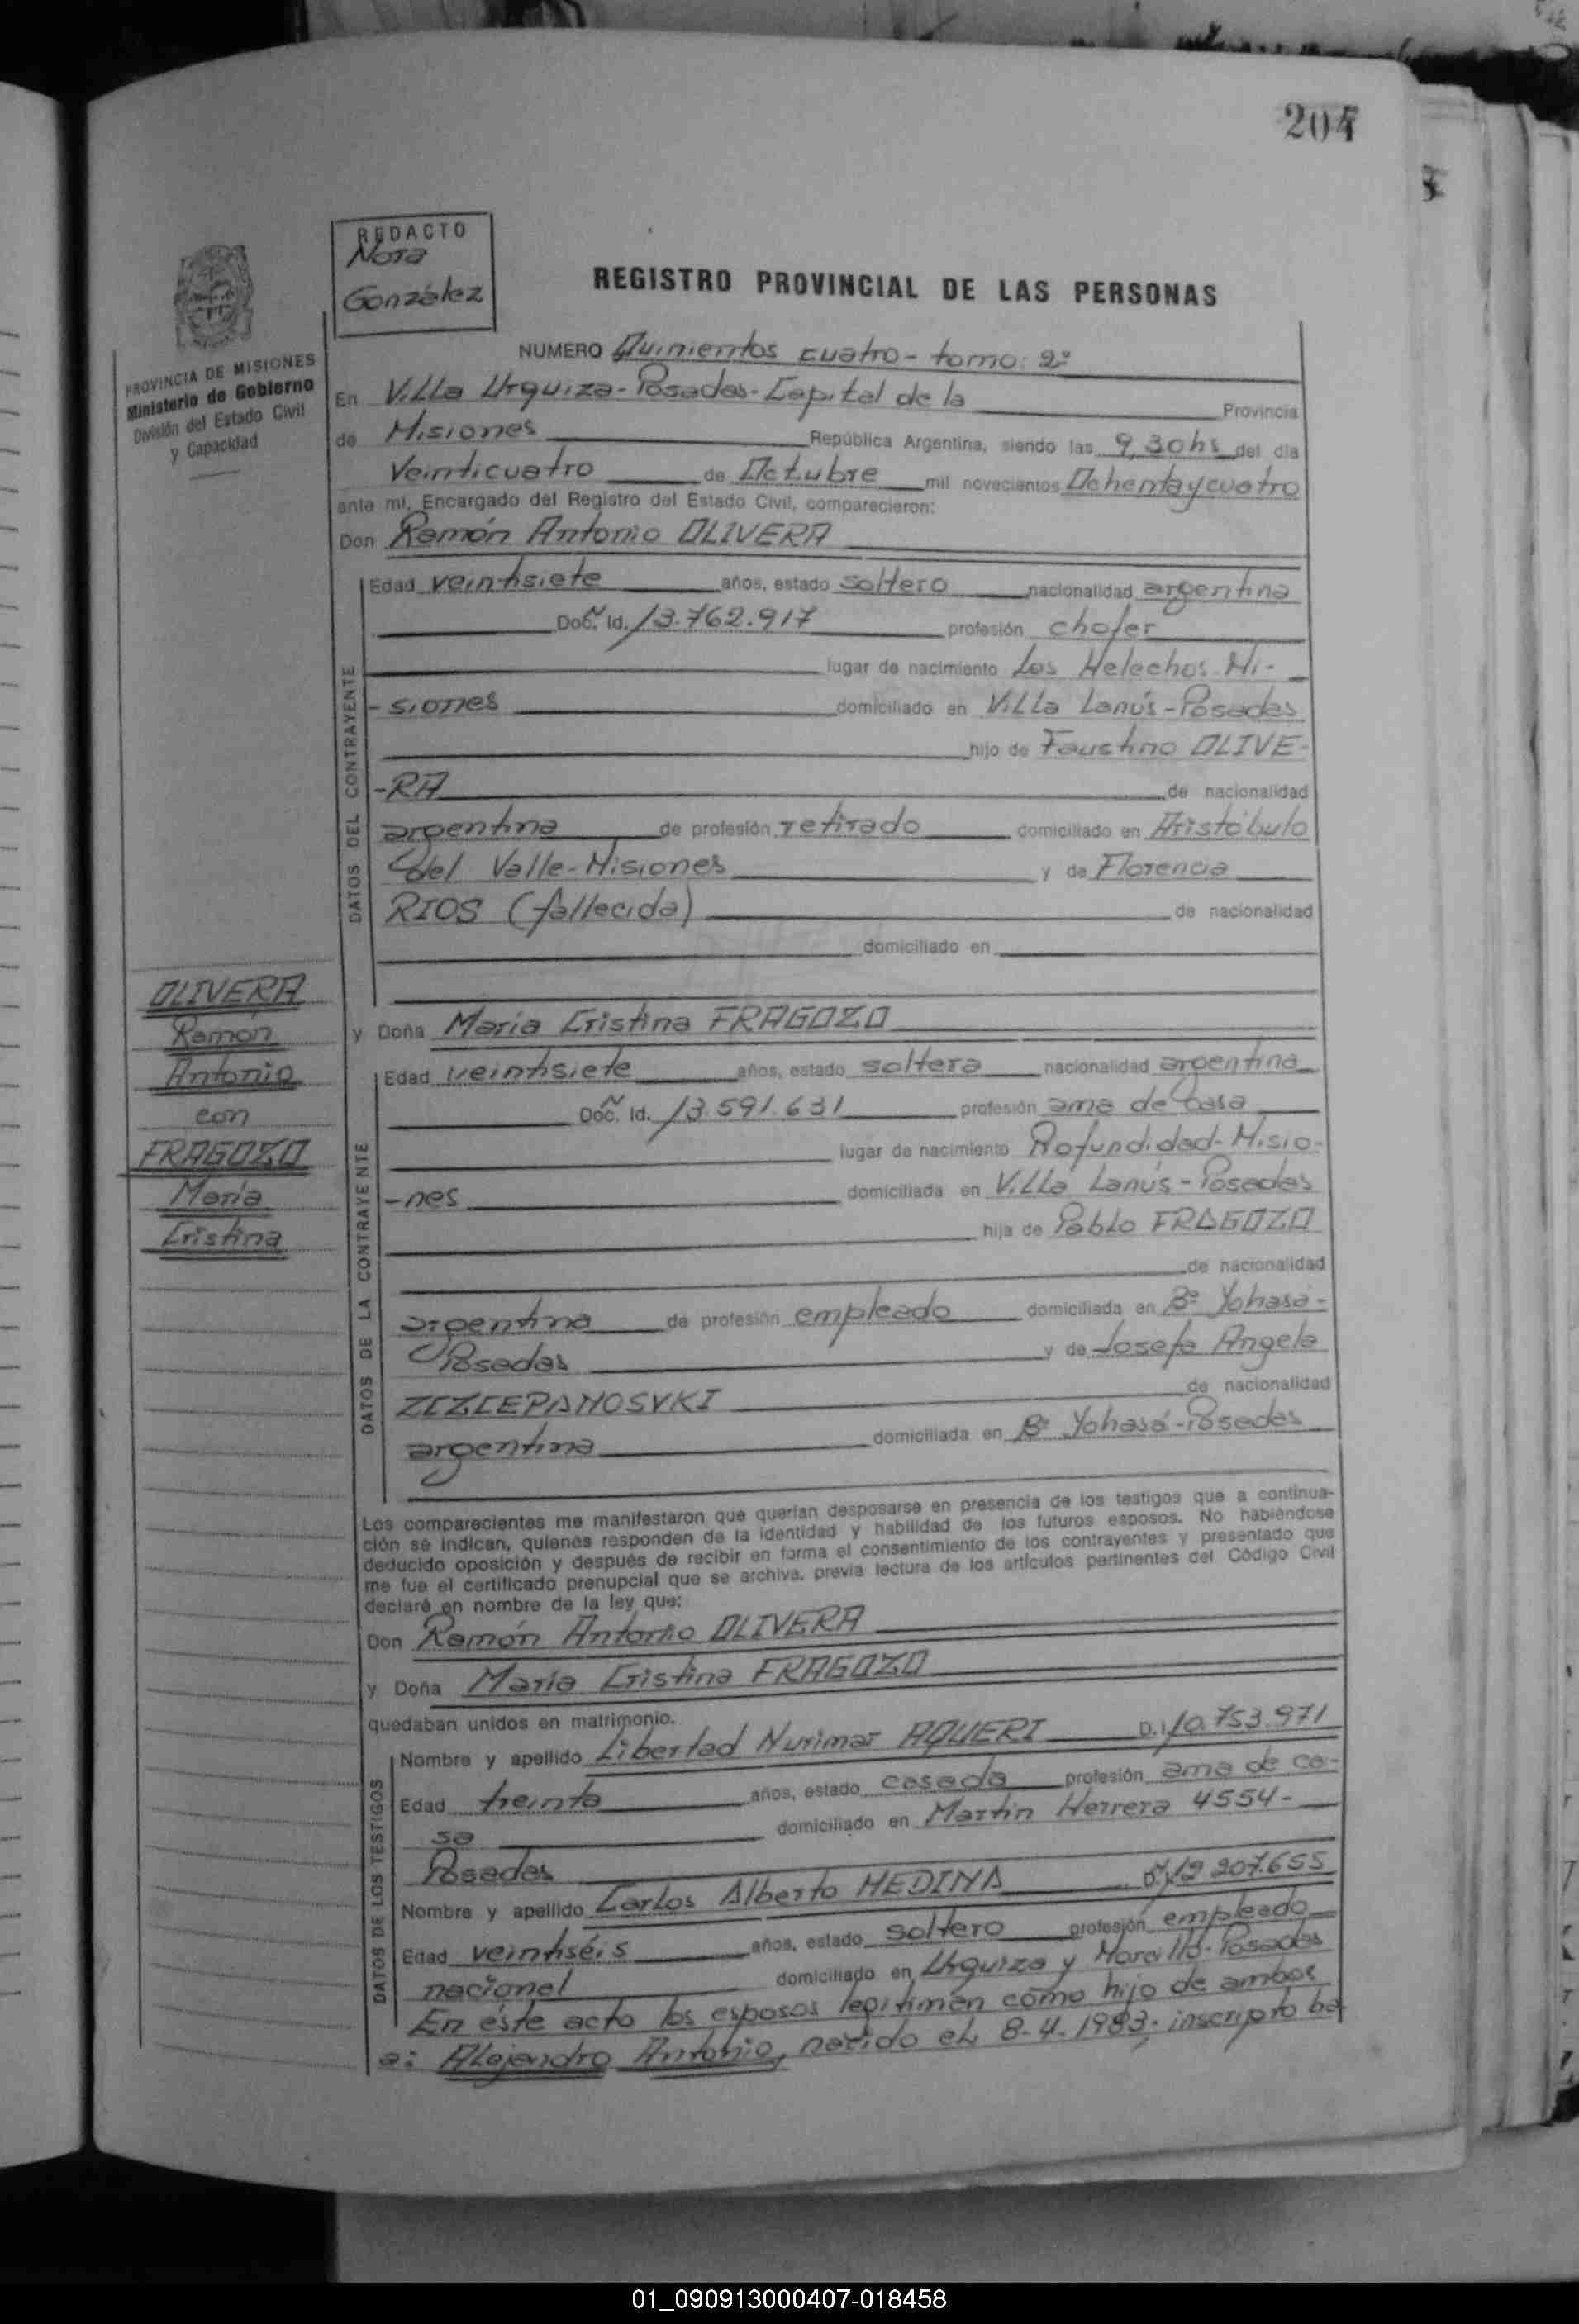 204
REDACTO
Nora
González
REGISTRO PROVINCIAL DE LAS PERSONAS
PROVINCIA DE MISIONES
Ministerio de Gobierno
División del Estado Civil
y Capacidad
NUMERO Quinientos cuatro - tomo: 2º
En Villa Urquiza - Posadas - Capital de la Provincia
de Misiones República Argentina, siendo las 9,30 hs del día
Veinticuatro de Octubre mil novecientos Ochenta y cuatro
ante mí, Encargado del Registro del Estado Civil, comparecieron:
Don Ramón Antonio OLIVERA
DATOS DEL CONTRAYENTE
Edad veintisiete años, estado soltero nacionalidad argentina
Doc. Id. 13.762.917 profesión chofer
lugar de nacimiento Los Helechos Mi-
-siones domiciliado en Villa Lanús - Posadas
hijo de Faustino OLIVE-
-RA de nacionalidad
argentina de profesión retirado domiciliado en Aristóbulo
del Valle - Misiones y de Florencia
RIOS (fallecida) de nacionalidad
domiciliado en
OLIVERA
Ramón
Antonio
con
FRAGOZO
María
Cristina
y Doña María Cristina FRAGOZO
DATOS DE LA CONTRAYENTE
Edad veintisiete años, estado soltera nacionalidad argentina
Doc. Id. 13.591.631 profesión ama de casa
lugar de nacimiento Profundidad - Misio-
-nes domiciliada en Villa Lanús - Posadas
hija de Pablo FRAGOZO
de nacionalidad
argentina de profesión empleado domiciliada en Bº Yohasá -
Posadas y de Josefa Angela
ZCZCEPANOSVKI de nacionalidad
argentina domiciliada en Bº Yohasá - Posadas
Los comparecientes me manifestaron que querían desposarse en presencia de los testigos que a continua-
ción se indican, quienes responden de la identidad y habilidad de los futuros esposos. No habiéndose
deducido oposición y después de recibir en forma el consentimiento de los contrayentes y presentado que
me fue el certificado prenupcial que se archiva, previa lectura de los artículos pertinentes del Código Civil
declaré en nombre de la ley que:
Don Ramón Antonio OLIVERA
y Doña María Cristina FRAGOZO
quedaban unidos en matrimonio.
DATOS DE LOS TESTIGOS
Nombre y apellido Libertad Nurimar AQUERI D.I. 10.753.971
Edad treinta años, estado casada profesión ama de ca-
sa domiciliado en Martin Herrera 4554 -
Posadas
Nombre y apellido Carlos Alberto MEDINA 12.207.655
Edad veintiséis años, estado soltero profesión empleado
nacional domiciliado en Urquiza y Posadas
En éste acto los esposos legitiman cómo hijo de ambos
a: Alejandro Antonio, nacido el 8-4-1983; inscripto ba
01_090913000407-018458